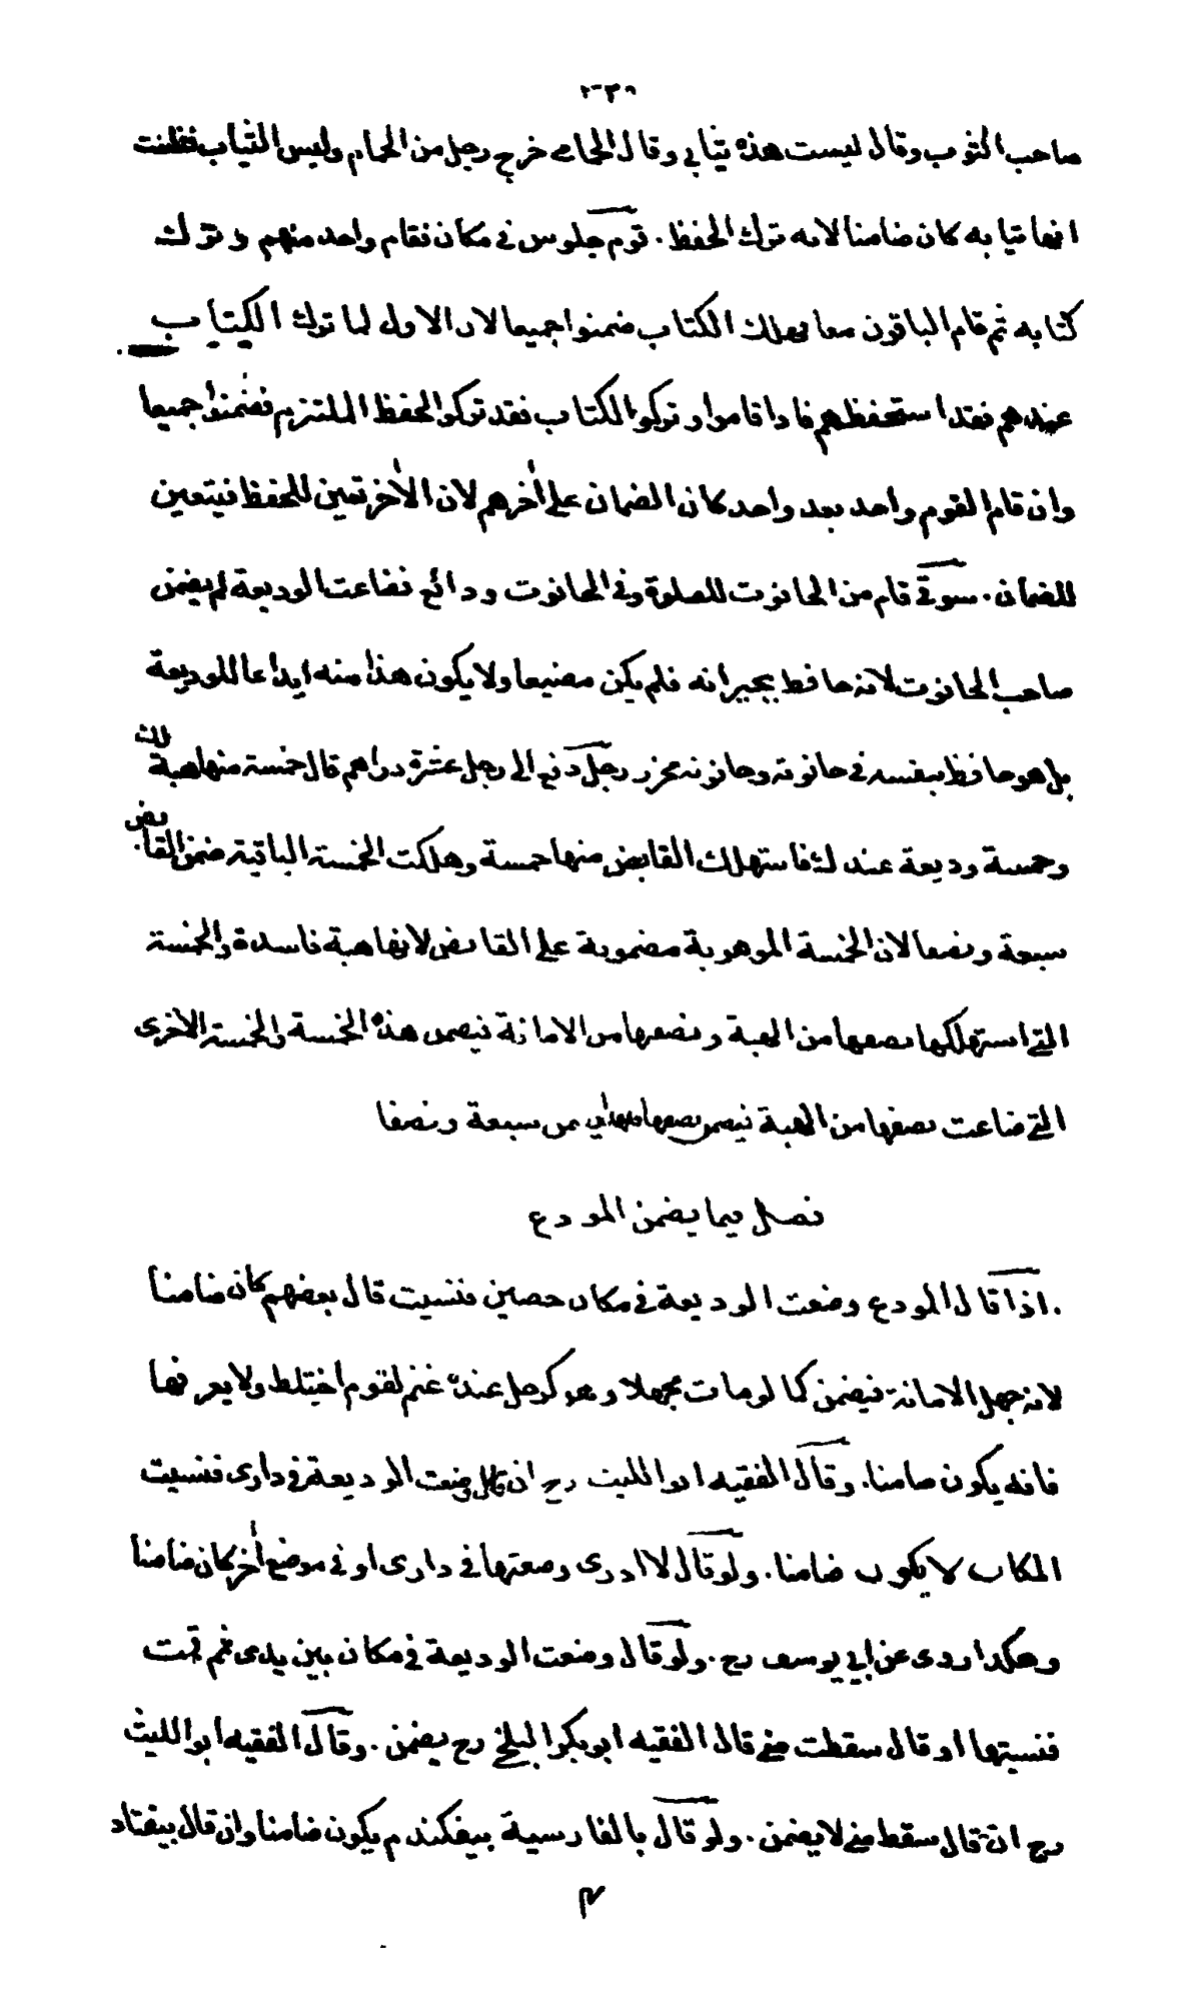 صاحب الثوب وقال ليست هذه ثيابي وقال الحمامي خرج رجل من الحمام ولبس الثياب فظننت
انها ثيابه كان ضامنا لانه ترك الحفظ . قوم جلوس في مكان فقام واحد منهم وترك
كتابه ثم قام الباقون معا فهلك الكتاب ضمنوا جميعا لان الاول لما ترك الكتاب
عندهم فقد استحفظهم فاذا قاموا وتركوا الكتاب فقد تركوا الحفظ الملتزم فضمنوا جميعا
وان قام القوم واحد بعد واحد كان الضمان على أخرهم لان الأخر تعين للحفظ فيتعين
للضمان . سوقي قام من الحانوت للصلوة وفي الحانوت ودائع فضاعت الوديعة لم يضمن
صاحب الحانوت لانه حافظ بجيرانه فلم يكن مضيعا ولا يكون هذا منه ايداعا للوديعة
بل هو حافظ بنفسه في حانوته وحانوته محرز رجل دفع الى رجل عشرة دراهم قال خمسة منها هبة لك
وخمسة وديعة عندك فاستهلك القابض منها خمسة وهلكت الخمسة الباقية ضمن القابض
سبعة ونصفا لان الخمسة الموهوبة مضمونة على القابض لانها هبة فاسدة والخمسة
التي استهلكها نصفها من الهبة ونصفها من الامانة فيضمن هذه الخمسة والخمسة الأخرى
التي ضاعت نصفها من الهبة فيضمن نصفها سبعة ونصفا
فصل فيما يضمن المودع
. اذا قال المودع وضعت الوديعة في مكان حصين فنسيت قال بعضهم كان ضامنا
لانه جهل الامانة فيضمن كما لو مات مجهلا وهو كرجل عنده غنم لقوم اختلط ولا يعرفها
فانه يكون ضامنا . وقال الفقيه ابو الليث رح ان قال وضعت الوديعة في دارى فنسيت
المكان لا يكون ضامنا . ولو قال لا ادرى وضعتها في دارى او في موضع أخر كان ضامنا
وهكذا روى عن ابي يوسف رح . ولو قال وضعت الوديعة في مكان بين يدى ثم قمت
فنسيتها او قال سقطت مني قال الفقيه ابو بكر البلخي رح يضمن . وقال الفقيه ابو الليث
رح ان قال سقط مني لا يضمن . ولو قال بالفارسية بيفكندم يكون ضامنا وان قال بيفتاد